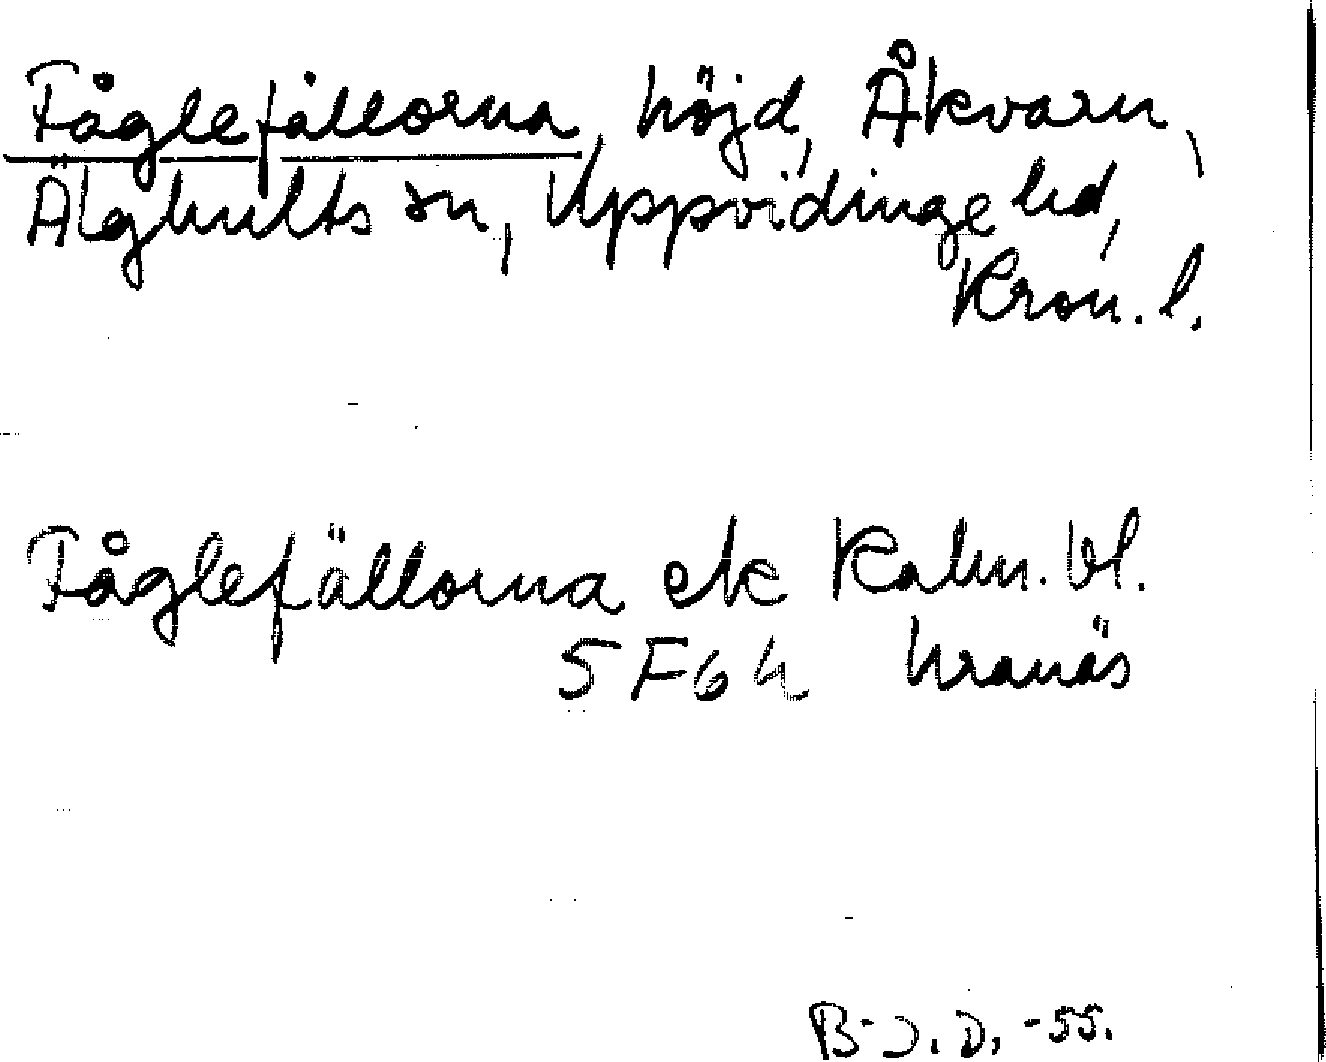 Fåglefällorna, höjd, Åkvarn,
Älghults sn, Uppvidinge hd,
Kron. l.
Fåglefällorna ek Kalm. bl.
5 F 6 h Kranäs
B-J. D. -55.